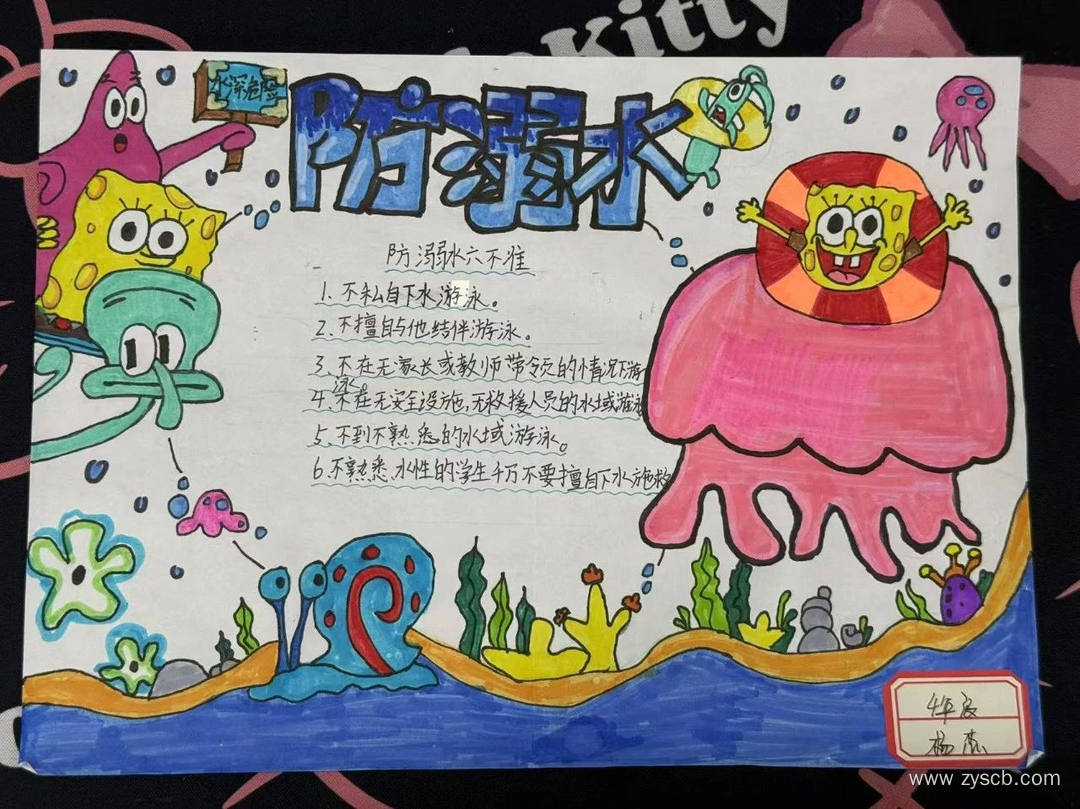 Kitty
水深危险
防溺水
防溺水六不准
1. 不私自下水游泳。
2. 不擅自与他结伴游泳。
3. 不在无家长或教师带领的情况下游
泳。
4. 不在无安全设施,无救援人员的水域游泳
5. 不到不熟悉的水域游泳。
6. 不熟悉水性的学生千万不要擅自下水施救
www.zyscb.com